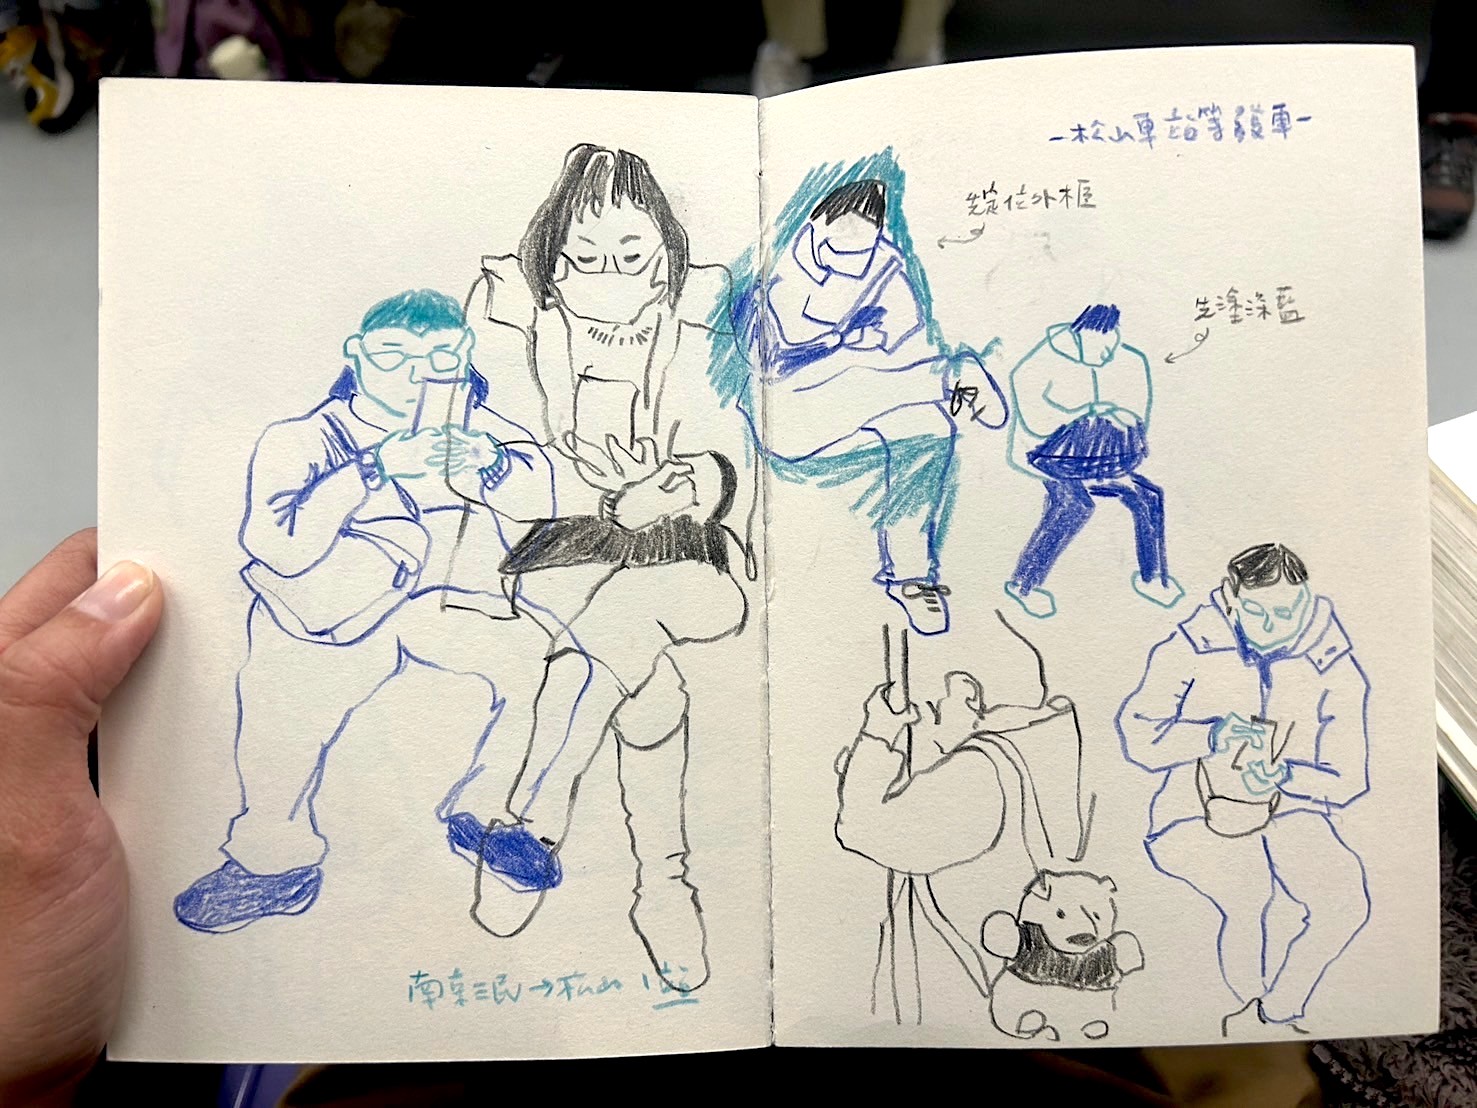 南京三民→松山 1站
-松山車站等發車-
先定位外框
先塗深藍